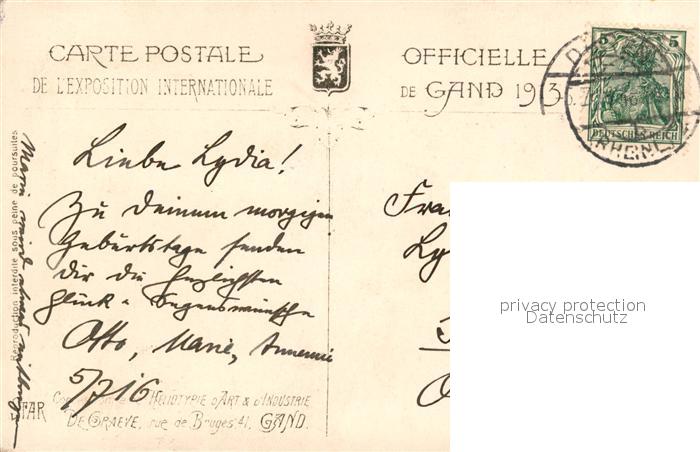 CARTE POSTALE
DE L'EXPOSITION INTERNATIONALE
OFFICIELLE
DE GAND 1913
5 5
DEUTSCHES REICH
(RHEINL
Liebe Lydia!
Zu Deinem morgigen
Geburtstage senden
Dir die herzlichsten
Glück- u. Segenswünsche
Otto, Marie, Annemie
5/7 16
Fra
Ly
privacy protection
Datenschutz
Reproduction interdite sous peine de poursuites
Marie wird
STAR
HELIOTYPIE D'ART & D'INDUSTRIE
DE GRAEVE, rue de Bruges 41, GAND.